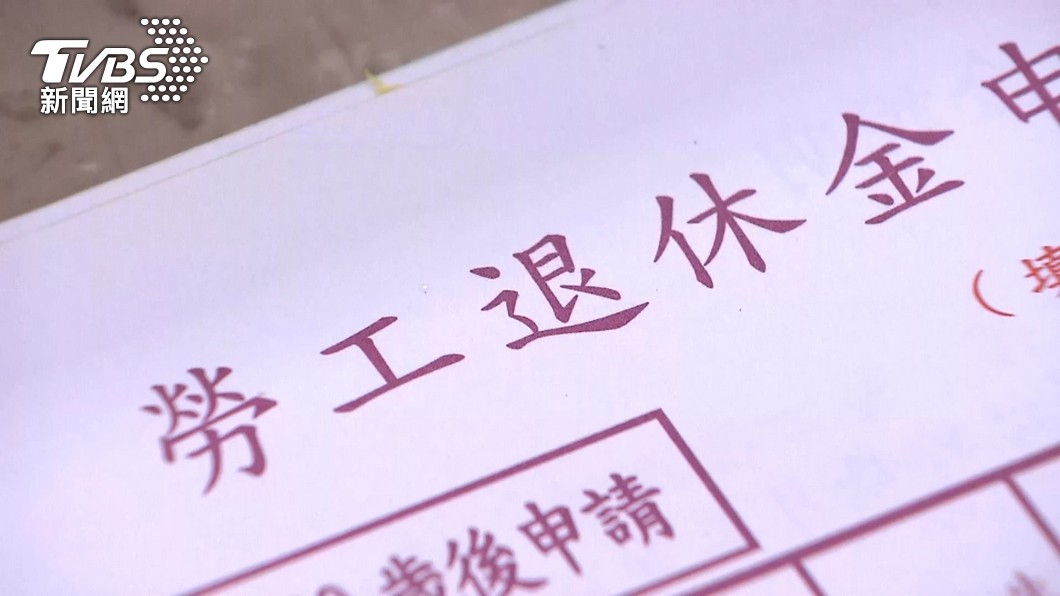 TVBS
新聞網
勞工退休金申
(填
歲後申請